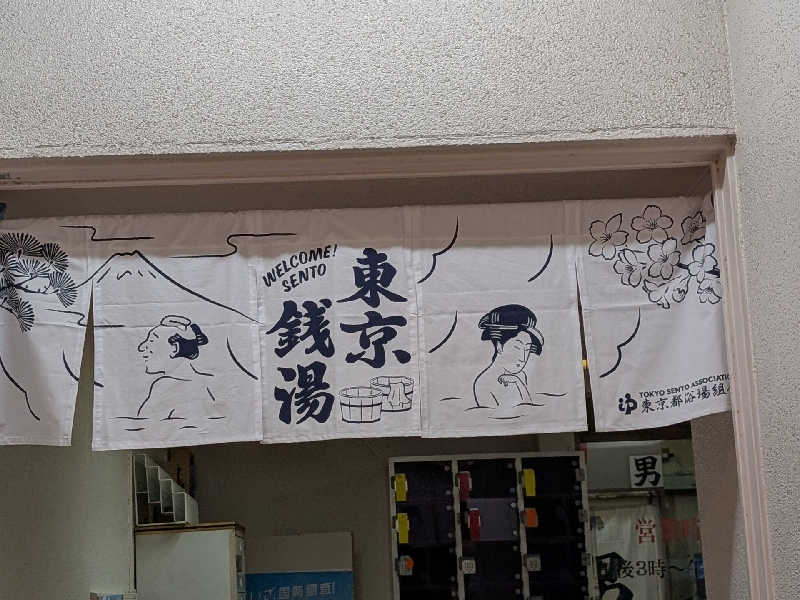 WELCOME!
SENTO
東京
銭湯
TOKYO SENTO ASSOCIATI
東京都浴場組
男
営
後3時〜